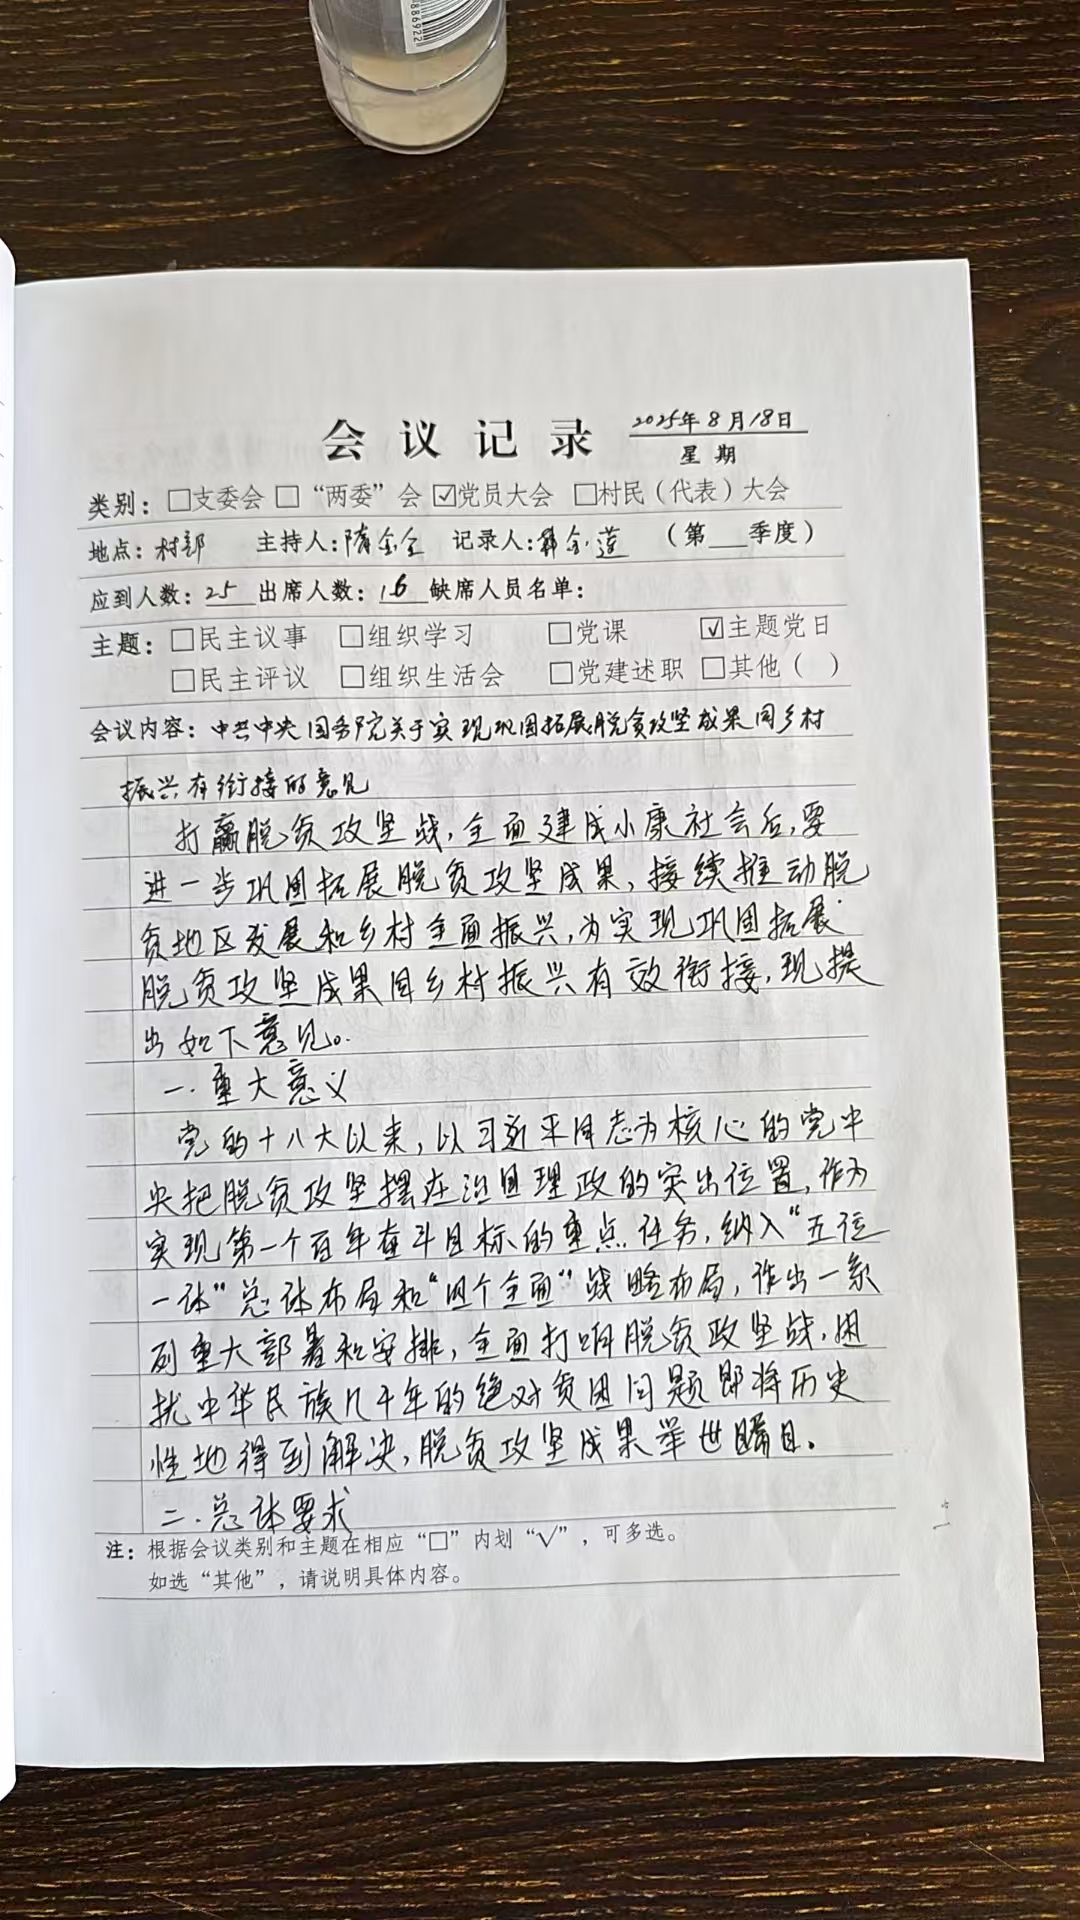 8886922
会议记录 2025年8月18日
星期
类别：□支委会 □“两委”会 ☑党员大会 □村民（代表）大会
地点：村部 主持人：隋金全 记录人：韩金莲 （第___季度）
应到人数：25 出席人数：16 缺席人员名单：
主题：□民主议事 □组织学习 □党课 ☑主题党日
□民主评议 □组织生活会 □党建述职 □其他（ ）
会议内容：中共中央国务院关于实现巩固拓展脱贫攻坚成果同乡村
振兴有衔接的意见
打赢脱贫攻坚战，全面建成小康社会后，要
进一步巩固拓展脱贫攻坚成果，接续推动脱
贫地区发展和乡村全面振兴，为实现巩固拓展
脱贫攻坚成果同乡村振兴有效衔接，现提
出如下意见。
一.重大意义
党的十八大以来，以习近平同志为核心的党中
央把脱贫攻坚摆在治国理政的突出位置，作为
实现第一个百年奋斗目标的重点任务，纳入“五位
一体”总体布局和“四个全面”战略布局，作出一系
列重大部署和安排，全面打响脱贫攻坚战，困
扰中华民族几千年的绝对贫困问题即将历史
性地得到解决，脱贫攻坚成果举世瞩目。
二.总体要求
注：根据会议类别和主题在相应“□”内划“√”，可多选。
如选“其他”，请说明具体内容。